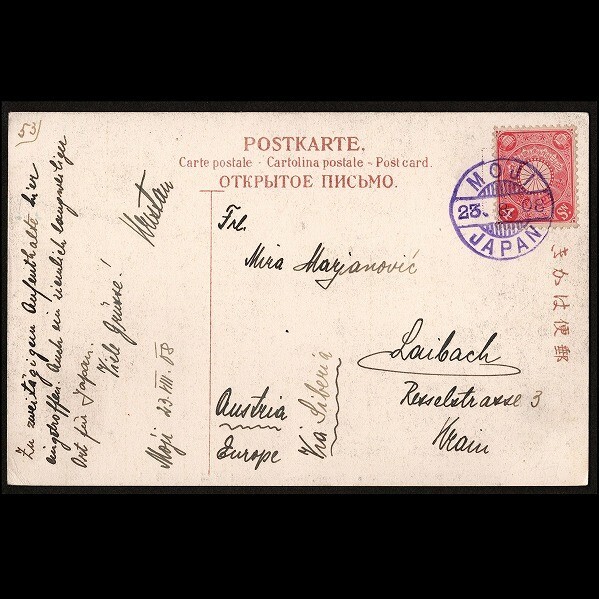 53
Zu zweitägigem Aufenthalte hier
eingetroffen. Auch ein ziemlich langweiliger
Ort für Japan.
Viele Grüsse!
Moji 23 VIII. 08
POSTKARTE.
Carte postale - Cartolina postale - Post card.
ОТКРЫТОЕ ПИСЬМО.
MOJI
23. 8. 08
JAPAN
きがは便郵
Frl.
Mira Marjanović
Laibach
Resselstrasse 3
Krain
Austria
Europe
Via Siberia